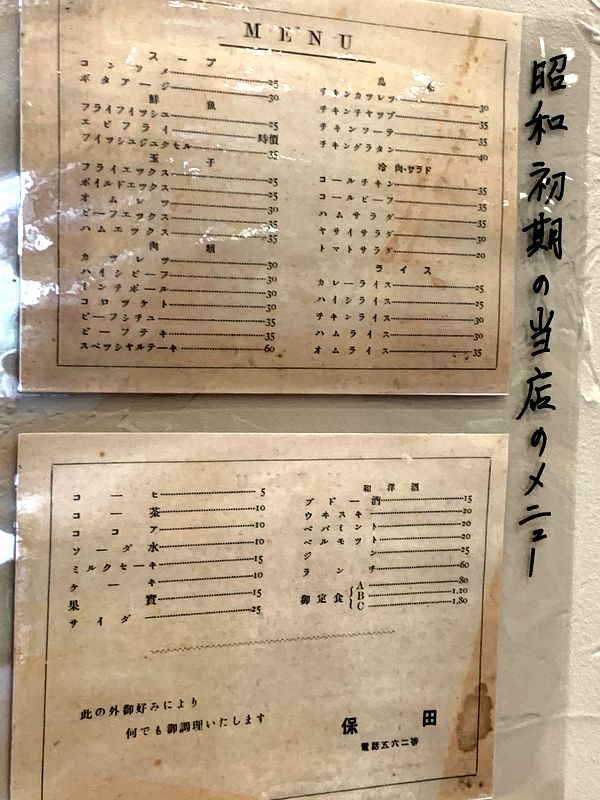 MENU
スープ
コンソメ 25
ポタアージ 30
鮮魚
フライフイツシユ 25
エビフライ 時價
フイツシユジユクセル 35
玉子
フライエックス 25
ボイルドエックス 25
オムレツ 30
ビーフエックス 35
ハムエックス 35
肉類
カツレツ 30
ハイシビーフ 30
ミンチボール 30
コロツケト 30
ビーフシチユ 35
ビーフテキ 35
スペツシヤルテーキ 60
チキンカツレツ 30
チキンチヤツプ 35
チキンソーテ 35
チキングラタン 40
冷肉・サラド
コールチキン 35
コールビーフ 35
ハムサラダ 35
ヤサイサラダ 30
トマトサラダ 20
ライス
カレーライス 25
ハイシライス 25
チキンライス 30
ハムライス 30
オムライス 35
昭和初期の当店のメニュー
コーヒ 5
コー茶 10
ココア 10
ソーダ水 10
ミルクセーキ 15
ケーキ 10
果實 15
サイダー 25
和洋酒
ブドー酒 15
ウキスキー 20
ペパミント 20
ベルモツト 20
ジン 25
ランチ 60
御定食 A 80
B 1,20
C 1,80
此の外御好みにより
何でも御調理いたします
保田
電話五六二番